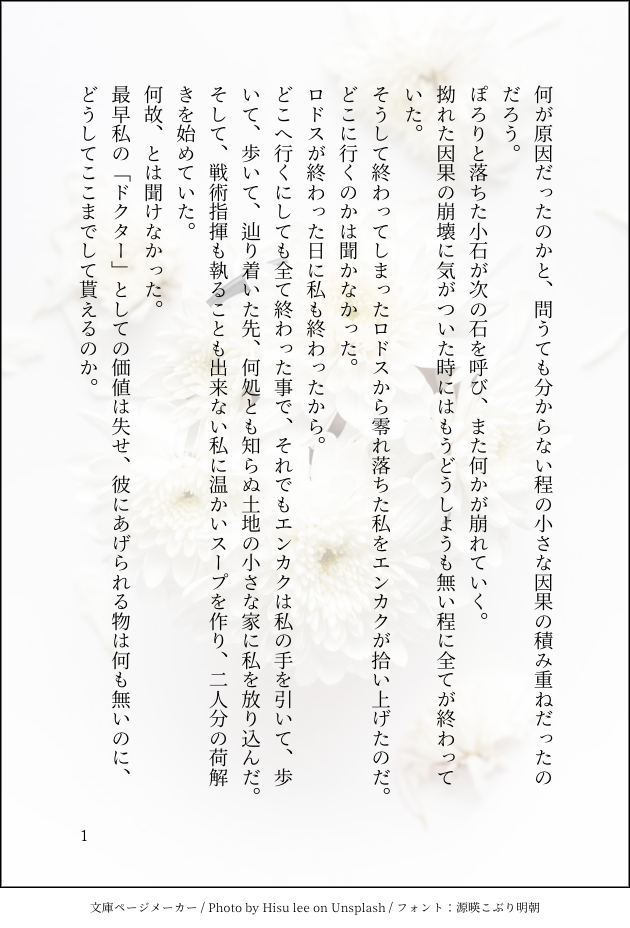 何が原因だったのかと、問うても分からない程の小さな因果の積み重ねだったの
だろう。
ぽろりと落ちた小石が次の石を呼び、また何かが崩れていく。
拗れた因果の崩壊に気がついた時にはもうどうしようも無い程に全てが終わって
いた。
そうして終わってしまったロドスから零れ落ちた私をエンカクが拾い上げたのだ。
どこに行くのかは聞かなかった。
ロドスが終わった日に私も終わったから。
どこへ行くにしても全て終わった事で、それでもエンカクは私の手を引いて、歩
いて、歩いて、辿り着いた先、何処とも知らぬ土地の小さな家に私を放り込んだ。
そして、戦術指揮も執ることも出来ない私に温かいスープを作り、二人分の荷解
きを始めていた。
何故、とは聞けなかった。
最早私の「ドクター」としての価値は失せ、彼にあげられる物は何も無いのに、
どうしてここまでして貰えるのか。
1
文庫ページメーカー / Photo by Hisu lee on Unsplash / フォント：源暎こぶり明朝